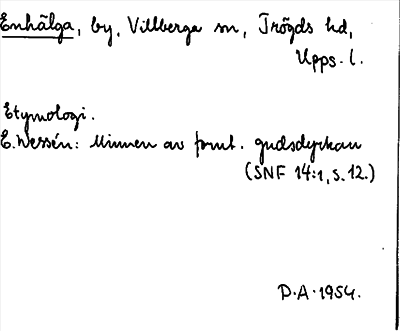 Enhälga, by, Villberga sn, Trögds hd,
Upps. l.
Etymologi.
E. Wessén: Minnen av fornt. gudsdyrkan
(SNF 14:1, s. 12.)
D.A. 1954.